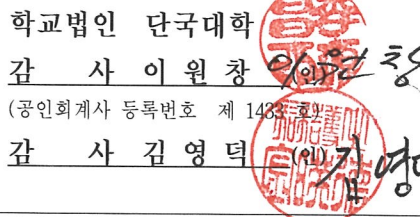 학교법인 단국대학
감 사 이 원 창 (인) 이원창
(공인회계사 등록번호 제 1433 호)
감 사 김 영 덕 (인) 김영